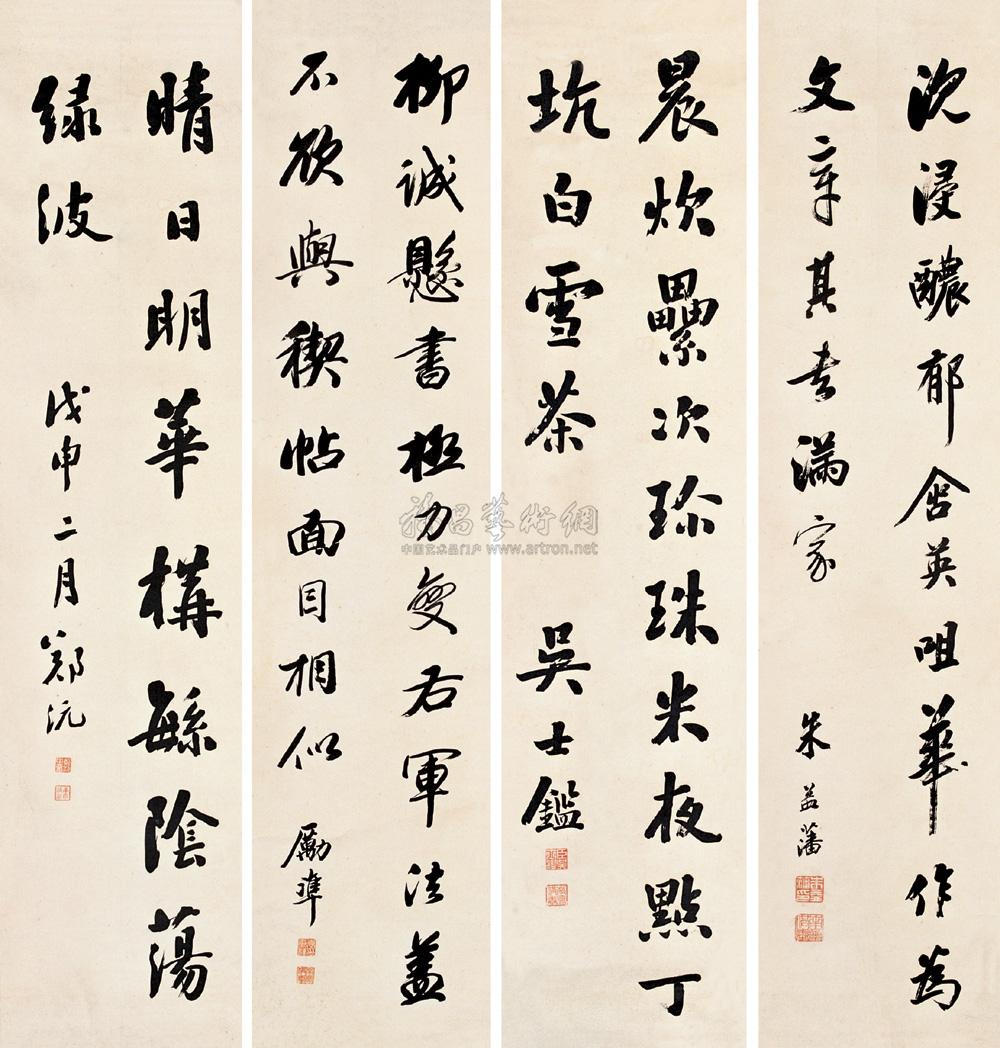 沈浸醲郁含英咀華作為
文章其書滿家
朱益藩
晨炊纍次珍珠米夜點丁
坑白雪茶
吳士鑑
柳誠懸書極力變右軍法蓋
不欲與禊帖面目相似
勵準
晴日明華構繇陰蕩
緑波
戊申二月鄭沅
雅昌藝術網
中国艺术品门户 www.artron.net